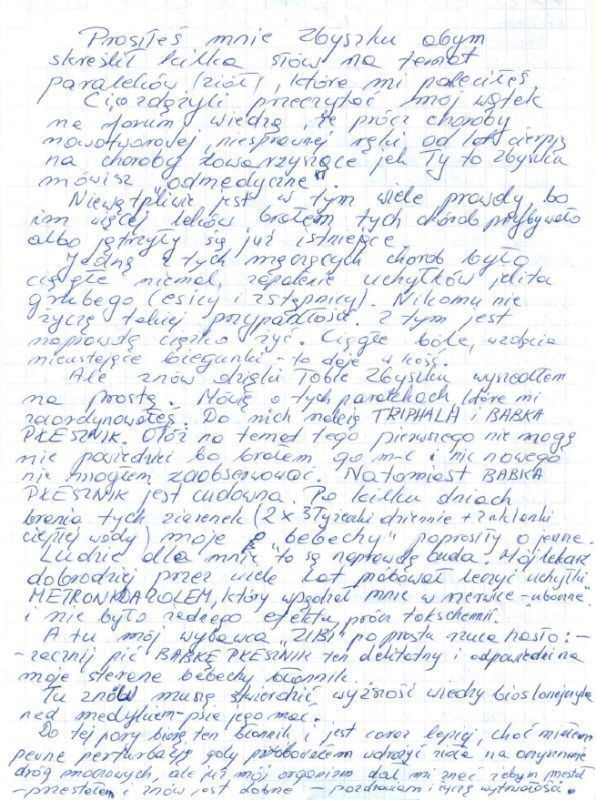 Prosiłeś mnie Zbyszku abym
skreślił kilka słów na temat
paraleków (ziół), które mi poleciłeś
Ci co zdążyli przeczytać mój wątek
na forum wiedzą, że prócz choroby
nowotworowej, niesprawnej ręki, od lat cierpię
na choroby towarzyszące jak Ty to Zbyszku
mówisz "odmedyczne".
Niewątpliwie jest w tym wiele prawdy, bo
im więcej leków brałem tych chorób przybywało
albo jątrzyły się już istniejące.
Jedną z tych męczących chorób było
ciągłe niemal, zapalenie uchyłków jelita
grubego (esicy i zstępnicy). Nikomu nie
życzę takiej przypadłości. Z tym jest
naprawdę ciężko żyć. Ciągłe bóle, wzdęcia
nieustające biegunki - to daje w kość.
Ale znów dzięki Tobie Zbyszku wyszedłem
na prostą. Mówię o tych paralekach, które mi
zaordynowałeś. Do nich należą TRIPHALA i BABKA
PŁESZNIK. Otóż na temat tego pierwszego nie mogę
nic powiedzieć bo brałem go m-c i nic nowego
nie mogłem zaobserwować. Natomiast BABKA
PŁESZNIK jest cudowna. Po kilku dniach
brania tych ziarenek (2 x 3 łyżeczki dziennie + szklanki
ciepłej wody) moje "bebechy" poprosiły o jeszcze.
Ludzie dla mnie "to są naprawdę cuda. Mój lekarz
dobrodziej przez wiele lat próbował leczyć uchyłki
METRONIDAZOLEM, który wpędzał mnie w nerwice
i nie było żadnego efektu, prócz toksemii.
A tu mój wybawca "ZIBI" po prostu rzuca hasło: -
- zacznij pić BABKĘ PŁESZNIK ten delikatny i odpowiedni na
moje sterane bebechy błonnik.
Tu znów muszę stwierdzić wyższość wiedzy
nad medykiem - psia jego mać.
Do tej pory biorę ten błonnik i jest coraz lepiej, choć miałem
pewne perturbacje gdy próbowałem wdrożyć zioła na oczyszczenie
dróg moczowych, ale już mój organizm dał mi znać żebym przestał
- przestałem i znów jest dobrze - pozdrawiam i życzę wytrwałości.